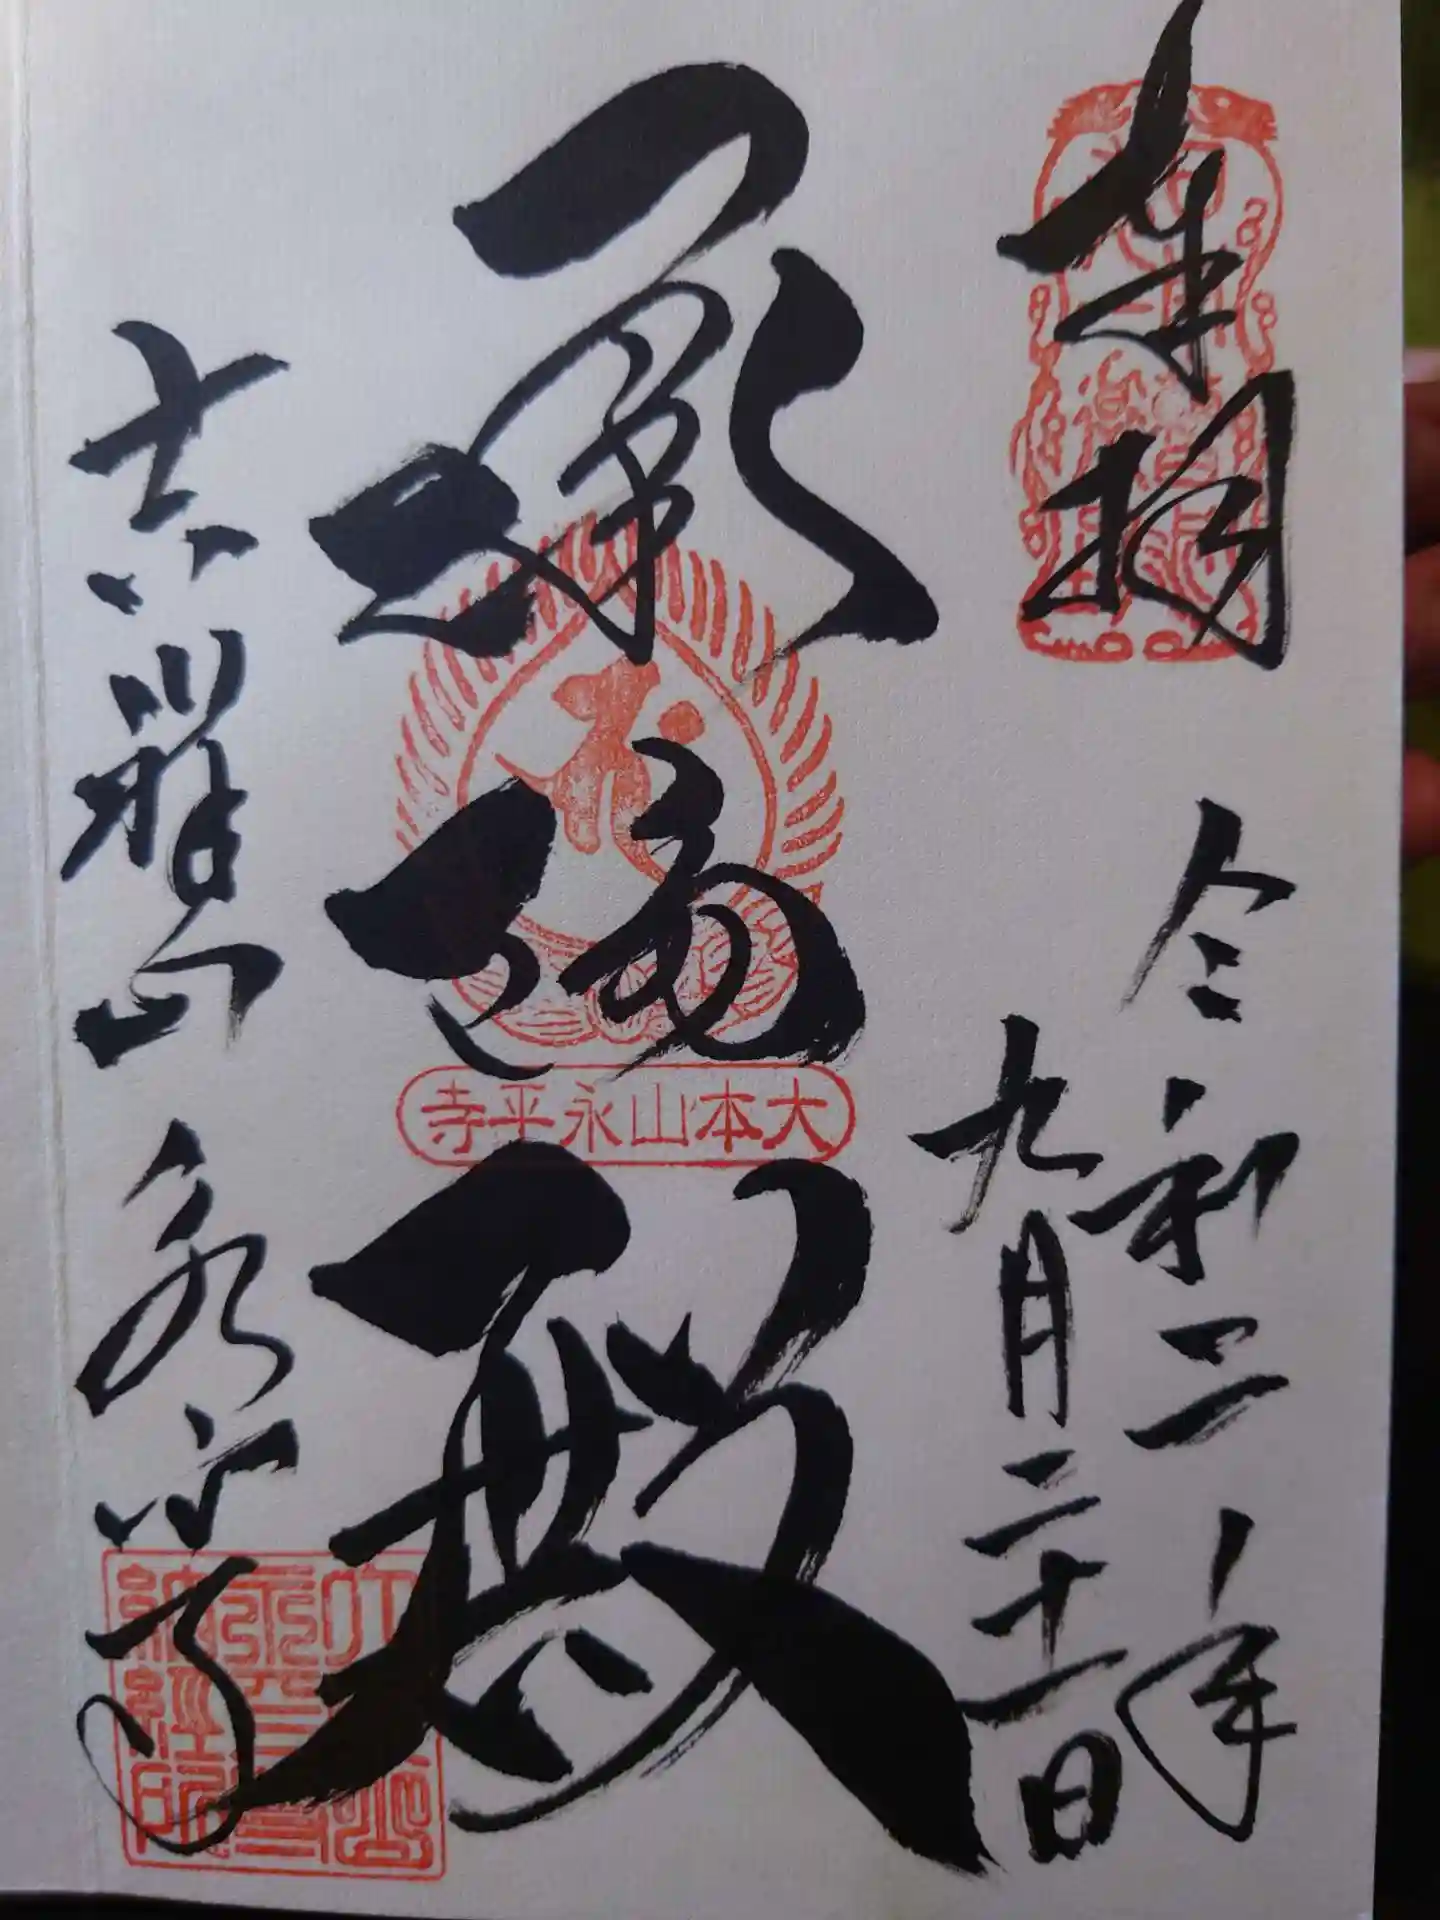 奉拝
令和二年
九月二十一日
承陽殿
大本山永平寺
吉祥山永平寺